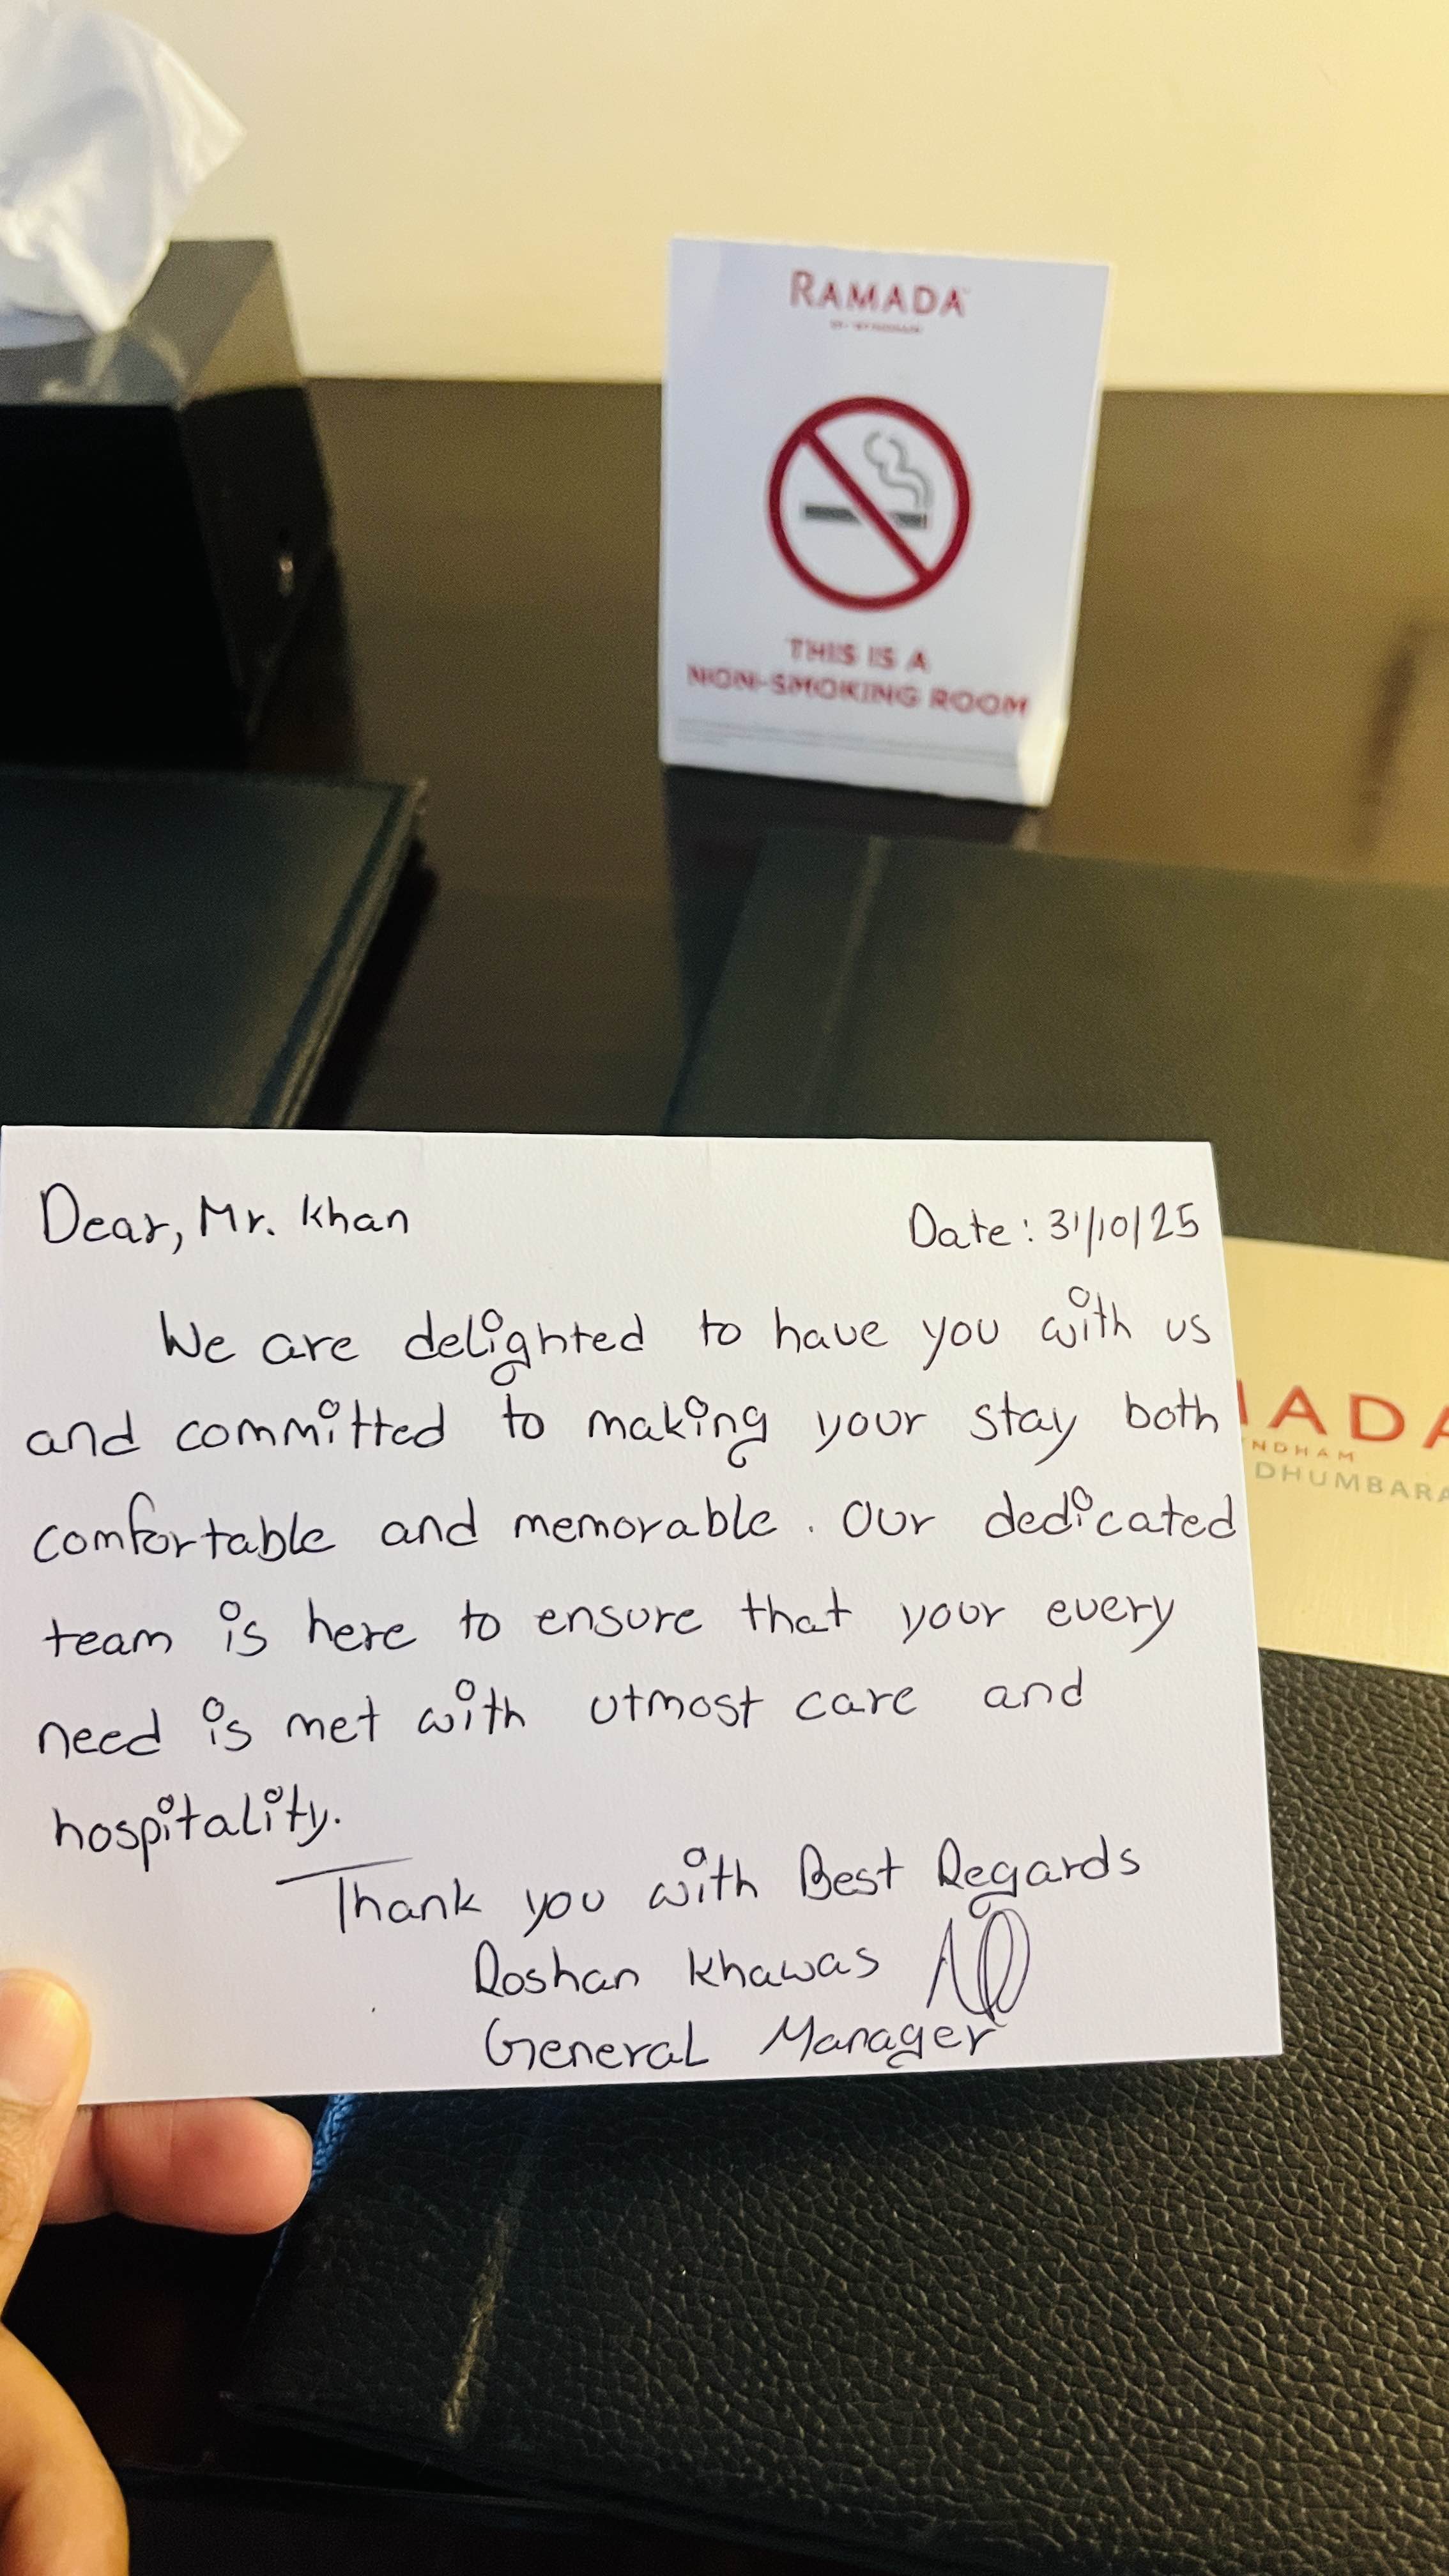 RAMADA
BY WYNDHAM
THIS IS A
NON-SMOKING ROOM
Dear, Mr. Khan
Date: 31/10/25
We are delighted to have you with us
and committed to making your stay both
comfortable and memorable. Our dedicated
team is here to ensure that your every
need is met with utmost care and
hospitality.
Thank you with Best Regards
Roshan Khawas
General Manager
MADA
NDHAM
DHUMBARA